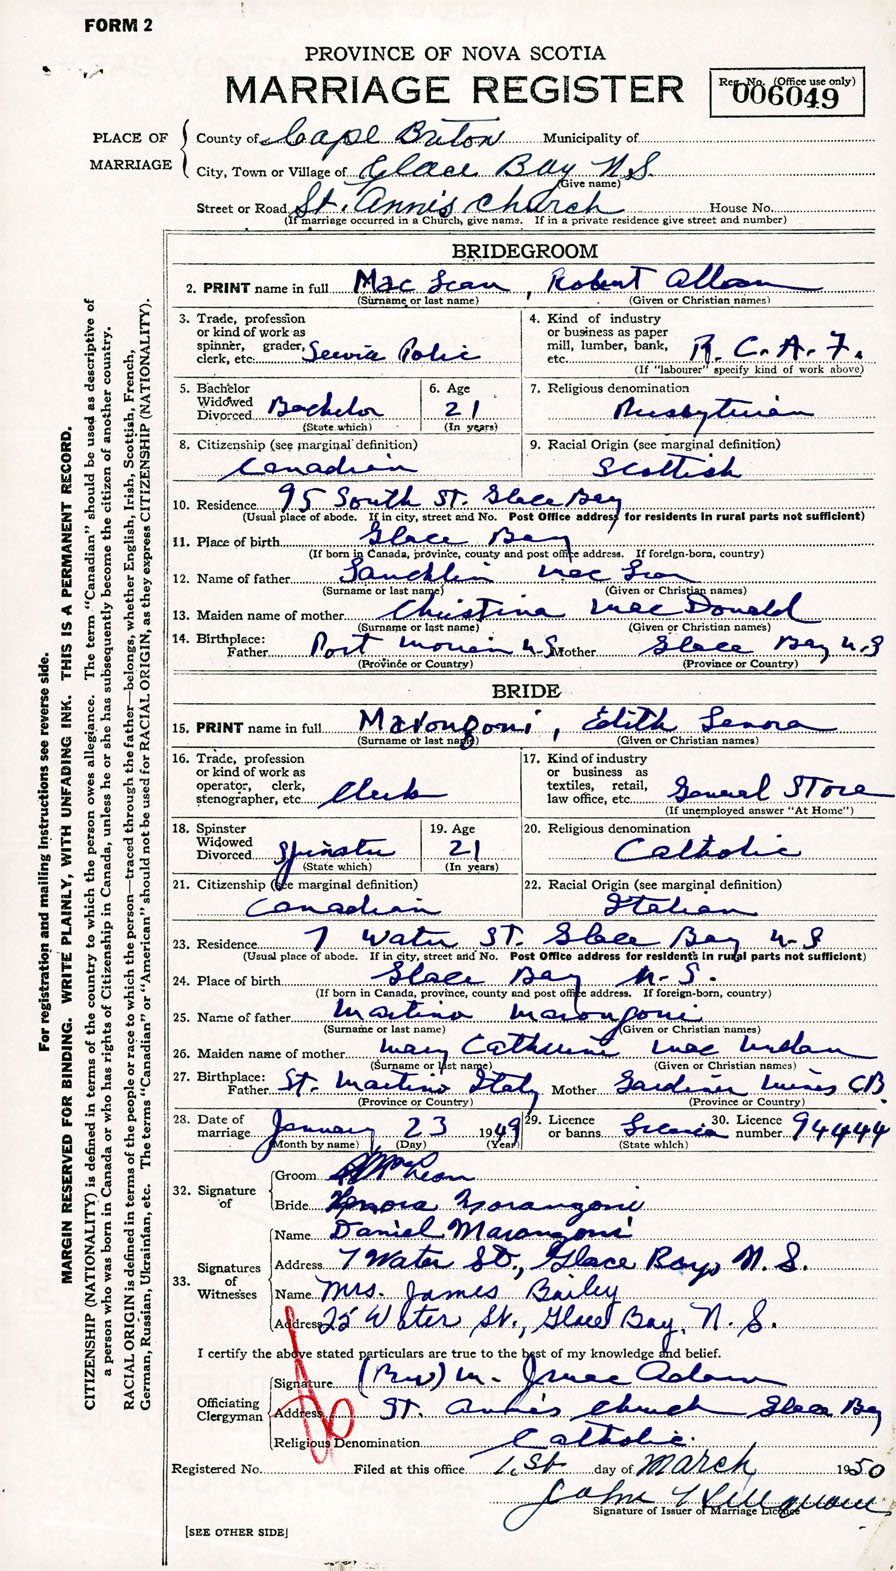 FORM 2
PROVINCE OF NOVA SCOTIA
MARRIAGE REGISTER
Reg. No. (Office use only)
006049
PLACE OF MARRIAGE
County of Cape Briton Municipality of
City, Town or Village of Glace Bay N.S
(Give name)
Street or Road St. Ann's Church House No.
(If marriage occurred in a Church, give name. If in a private residence give street and number)
BRIDEGROOM
2. PRINT name in full Mac Lean, Robert Allan
(Surname or last name) (Given or Christian names)
3. Trade, profession
or kind of work as
spinner, grader,
clerk, etc. Service Police
4. Kind of industry
or business as paper
mill, lumber, bank,
etc. R. C. A. F.
(If "labourer" specify kind of work above)
5. Bachelor
Widowed
Divorced Bachelor
(State which)
6. Age
21
(In years)
7. Religious denomination
Presbyterian
8. Citizenship (see marginal definition)
Canadian
9. Racial Origin (see marginal definition)
Scottish
10. Residence 95 South St. Glace Bay
(Usual place of abode. If in city, street and No. Post Office address for residents in rural parts not sufficient)
11. Place of birth Glace Bay
(If born in Canada, province, county and post office address. If foreign-born, country)
12. Name of father Lauchlin Mac Lean
(Surname or last name) (Given or Christian names)
13. Maiden name of mother Christina Mac Donald
(Surname or last name) (Given or Christian names)
14. Birthplace:
Father Port Morien N.S Mother Glace Bay N.S
(Province or Country) (Province or Country)
BRIDE
15. PRINT name in full Marongoni, Edith Lenora
(Surname or last name) (Given or Christian names)
16. Trade, profession
or kind of work as
operator, clerk,
stenographer, etc. Clerk
17. Kind of industry
or business as
textiles, retail,
law office, etc. General Store
(If unemployed answer "At Home")
18. Spinster
Widowed
Divorced Spinster
(State which)
19. Age
21
(In years)
20. Religious denomination
Catholic
21. Citizenship (see marginal definition)
Canadian
22. Racial Origin (see marginal definition)
Italian
23. Residence 7 Water ST. Glace Bay N.S
(Usual place of abode. If in city, street and No. Post Office address for residents in rural parts not sufficient)
24. Place of birth Glace Bay N.S.
(If born in Canada, province, county and post office address. If foreign-born, country)
25. Name of father Martino Marongoni
(Surname or last name) (Given or Christian names)
26. Maiden name of mother Mary Catherine Mac
(Surname or last name) (Given or Christian names)
27. Birthplace:
Father St. Martino Italy Mother Gardiner Mines CB
(Province or Country) (Province or Country)
28. Date of
marriage January 23 1949
(Month by name) (Day) (Year)
29. Licence
or banns License
(State which)
30. Licence
number 94444
32. Signature of
Groom
Bride Lenora Marangoni
33. Signatures of Witnesses
Name Daniel Marongoni
Address 7 Water St., Glace Bay, N. S.
Name Mrs. James Bailey
Address 25 Water St., Glace Bay, N. S.
I certify the above stated particulars are true to the best of my knowledge and belief.
Officiating Clergyman
Signature (Rev) M.
Address ST. Ann's Church Glace Bay
Religious Denomination Catholic
Registered No. Filed at this office 1.st day of March 1950
John
Signature of Issuer of Marriage Licence
[SEE OTHER SIDE]
For registration and mailing instructions see reverse side.
MARGIN RESERVED FOR BINDING. WRITE PLAINLY, WITH UNFADING INK. THIS IS A PERMANENT RECORD.
CITIZENSHIP (NATIONALITY) is defined in terms of the country to which the person owes allegiance. The term "Canadian" should be used as descriptive of
a person who was born in Canada or who has rights of Citizenship in Canada, unless he or she has subsequently become the citizen of another country.
RACIAL ORIGIN is defined in terms of the people or race to which the person—traced through the father—belongs, whether English, Irish, Scottish, French,
German, Russian, Ukrainian, etc. The terms "Canadian" or "American" should not be used for RACIAL ORIGIN, as they express CITIZENSHIP (NATIONALITY).